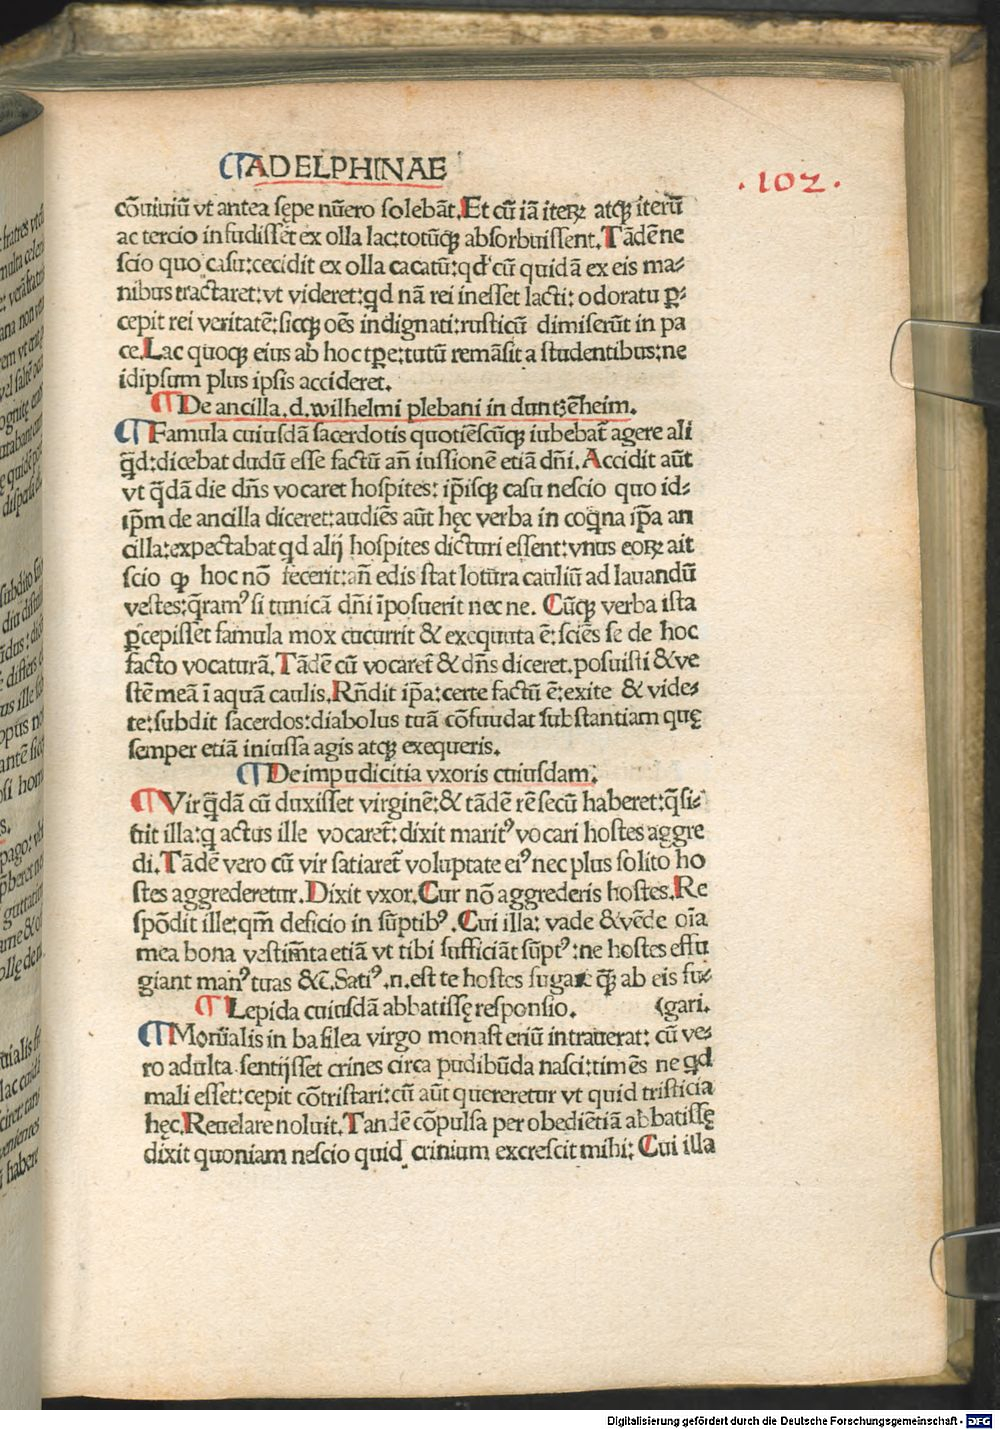 ADELPHINAE
.102.
cōuiuiū vt antea sępe nūero solebāt. Et cū iā iteꝝ atqꝫ iterū
ac tercio infudissēt ex olla lac: totūqꝫ absorbuissent. Tādē ne
scio quo casu: cecidit ex olla cacatū: qđ cū quidā ex eis ma⸗
nibus tractaret: vt videret: qđ nā rei inesset lacti: odoratu ꝑ⸗
cepit rei veritatē: sicqꝫ oēs indignati: rusticū dimiserūt in pa
ce. Lac quoqꝫ eius ab hoc tꝑe: tutū remāsit a studentibus: ne
idipsum plus ipsis accideret.
De ancilla. d. wilhelmi plebani in duntzēheim.
Famula cuiusdā sacerdotis quotiēscūqꝫ iubebat̄ agere ali
q̄d: dicebat dudū esse factū añ iussionē etiā dn̄i. Accidit aūt
vt q̄dā die dn̄s vocaret hospites: ip̄isqꝫ casu nescio quo id⸗
ip̄m de ancilla diceret: audiēs aūt hęc verba in coq̄na ip̄a an
cilla: expectabat qđ alij hospites dicturi essent: vnus eoꝝ ait
scio ꝙ hoc nō fecerit: añ edis stat lotura cauliū ad lauandū
vestes: q̄ramꝰ si tunicā dn̄i īposuerit nec ne. Cūqꝫ verba ista
ꝑcepisset famula mox cucurrit & exequuta ē: sciēs se de hoc
facto vocaturā. Tādē cū vocaret̄ & dn̄s diceret. posuisti & ve
stē meā ī aquā caulis. Rñdit ip̄a: certe factū ē: exite & vide⸗
te: subdit sacerdos: diabolus tuā cōfundat substantiam quę
semper etiā iniussa agis atqꝫ exequeris.
De impudicitia vxoris cuiusdam.
Vir q̄dā cū duxisset virginē: & tādē rē secū haberet: q̄si⸗
uit illa: q̄ actus ille vocaret̄: dixit maritꝰ vocari hostes aggre
di. Tādē vero cū vir satiaret̄ voluptate eiꝰ nec plus solito ho
stes aggrederetur. Dixit vxor. Cur nō aggrederis hostes. Re
spōdit ille: qm̄ deficio in sūptibꝰ. Cui illa: vade & vēde oīa
mea bona vestim̄ta etiā vt tibi sufficiāt sūptꝰ: ne hostes effu
giant manꝰ tuas &c̄. Satiꝰ .n. est te hostes fugare q̄ꝫ ab eis fu⸗
Lepida cuiusdā abbatissę responsio. (gari.
Moniālis in basilea virgo monasteriū intrauerat: cū ve⸗
ro adulta sentijsset crines circa pudibūda nasci: timēs ne qđ
mali esset: cepit cōtristari: cū aūt quereretur vt quid tristicia
hęc. Reuelare noluit. Tandē cōpulsa per obediētiā abbatissę
dixit quoniam nescio quid crinium excrescit mihi: Cui illa
Digitalisierung gefördert durch die Deutsche Forschungsgemeinschaft - DFG